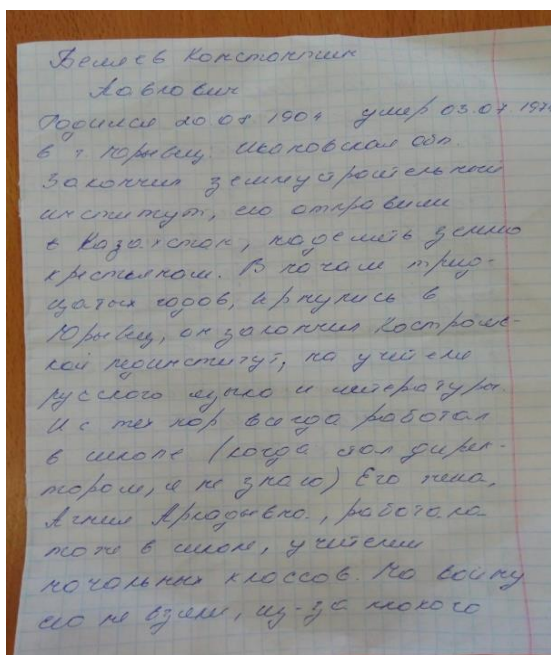 Беляев Константин
Павлович
Родился 20 07 1904 умер 03.07.197
в г Юрьевец. Ивановская обл.
Закончил землеустроительный
институт, его отправили
в Казахстан, наделять землю
крестьянам. В начале трид-
цатых годов, вернулись в
Юрьевец, он закончил Костромс-
кой пединститут, на учителя
русского языка и литературы.
И с тех пор всегда работал
в школе (когда стал дирек-
тором, я не знаю) Его жена,
Агния Аркадьевна, работала
тоже в школе, учителем
начальных классов. На войну
его не взяли, из-за плохого